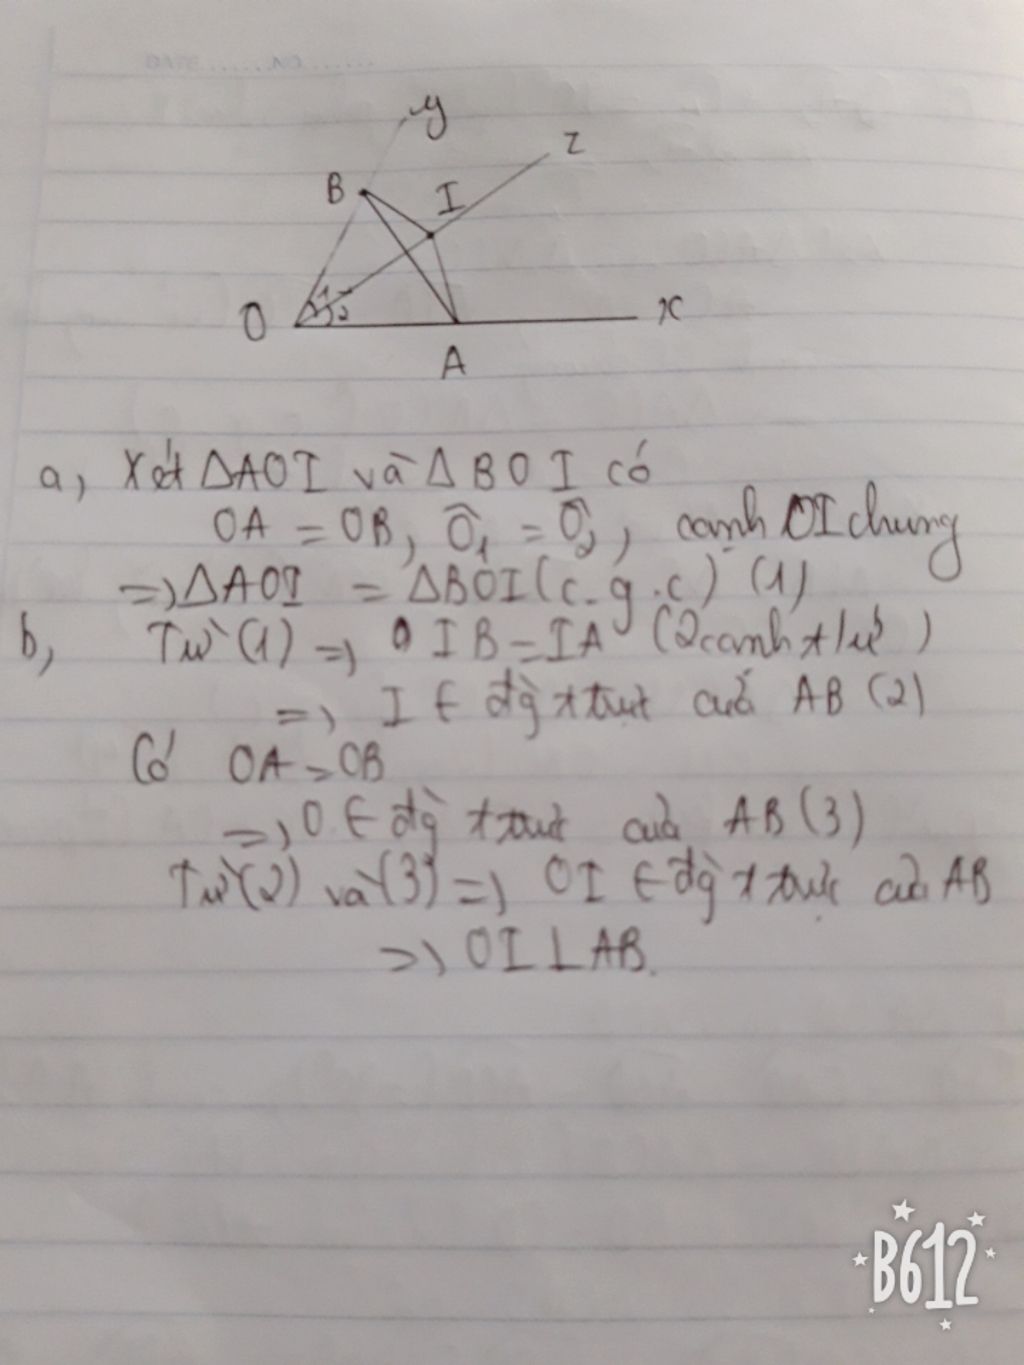 DATE ....... NO .......
y
z
B
I
1
2
O
x
A
a, Xét ΔAOI và ΔBOI có
OA = OB, Ô₁ = Ô₂, cạnh OI chung
=> ΔAOI = ΔBOI (c.g.c) (1)
b, Từ (1) => IB = IA (2 cạnh t/ứ)
=> I ∈ đg t trực của AB (2)
Có OA = OB
=> O ∈ đg t trực của AB (3)
Từ (2) và (3) => OI ∈ đg t trực của AB
=> OI ⊥ AB.
B612